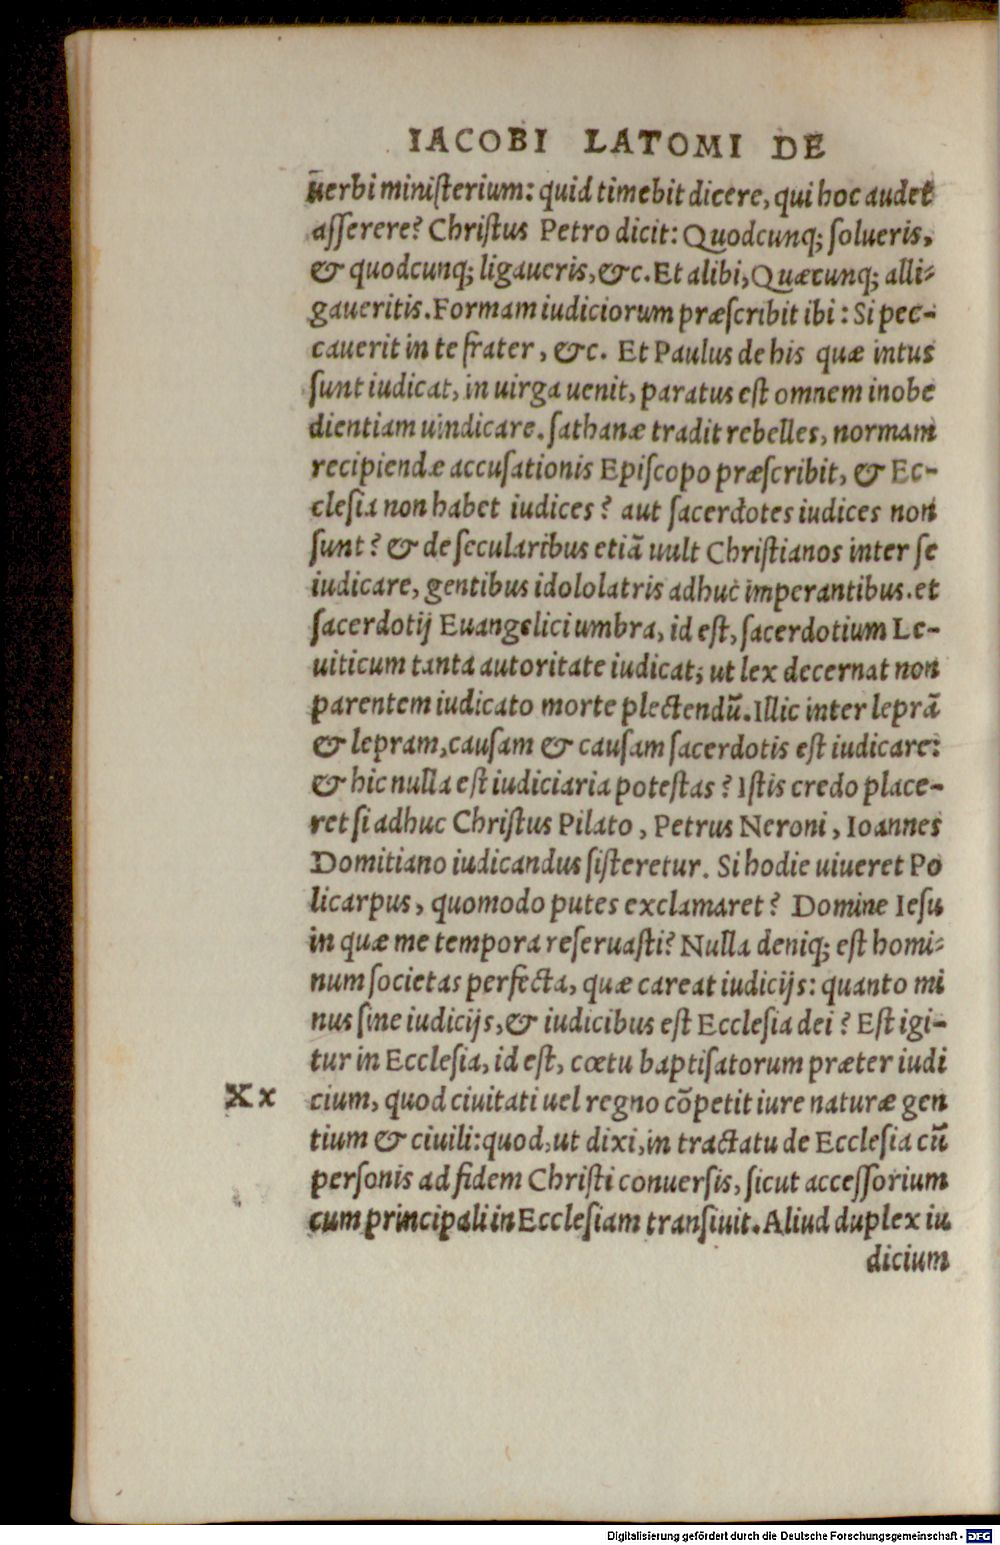 IACOBI LATOMI DE
uerbi ministerium: quid timebit dicere, qui hoc audet
asserere? Christus Petro dicit: Quodcunq; solueris,
& quodcunq; ligaueris, &c. Et alibi, Quæcunq; alli-
gaueritis. Formam iudiciorum præscribit ibi: Si pec-
cauerit in te frater, &c. Et Paulus de his quæ intus
sunt iudicat, in uirga uenit, paratus est omnem inobe
dientiam uindicare. sathanæ tradit rebelles, normam
recipiendæ accusationis Episcopo præscribit, & Ec-
clesia non habet iudices? aut sacerdotes iudices non
sunt? & de secularibus etiã uult Christianos inter se
iudicare, gentibus idololatris adhuc imperantibus. et
sacerdotij Euangelici umbra, id est, sacerdotium Le-
uiticum tanta autoritate iudicat; ut lex decernat non
parentem iudicato morte plectendũ. Illic inter leprã
& lepram, causam & causam sacerdotis est iudicare:
& hic nulla est iudiciaria potestas? Istis credo place-
ret si adhuc Christus Pilato, Petrus Neroni, Ioannes
Domitiano iudicandus sisteretur. Si hodie uiueret Po
licarpus, quomodo putes exclamaret? Domine Iesu
in quæ me tempora reseruasti? Nulla deniq; est homi-
num societas perfecta, quæ careat iudicijs: quanto mi
nus sine iudicijs, & iudicibus est Ecclesia dei? Est igi-
tur in Ecclesia, id est, cœtu baptisatorum præter iudi
Xx cium, quod ciuitati uel regno cõpetit iure naturæ gen
tium & ciuili: quod, ut dixi, in tractatu de Ecclesia cũ
personis ad fidem Christi conuersis, sicut accessorium
cum principali in Ecclesiam transiuit. Aliud duplex iu
dicium
Digitalisierung gefördert durch die Deutsche Forschungsgemeinschaft - DFG